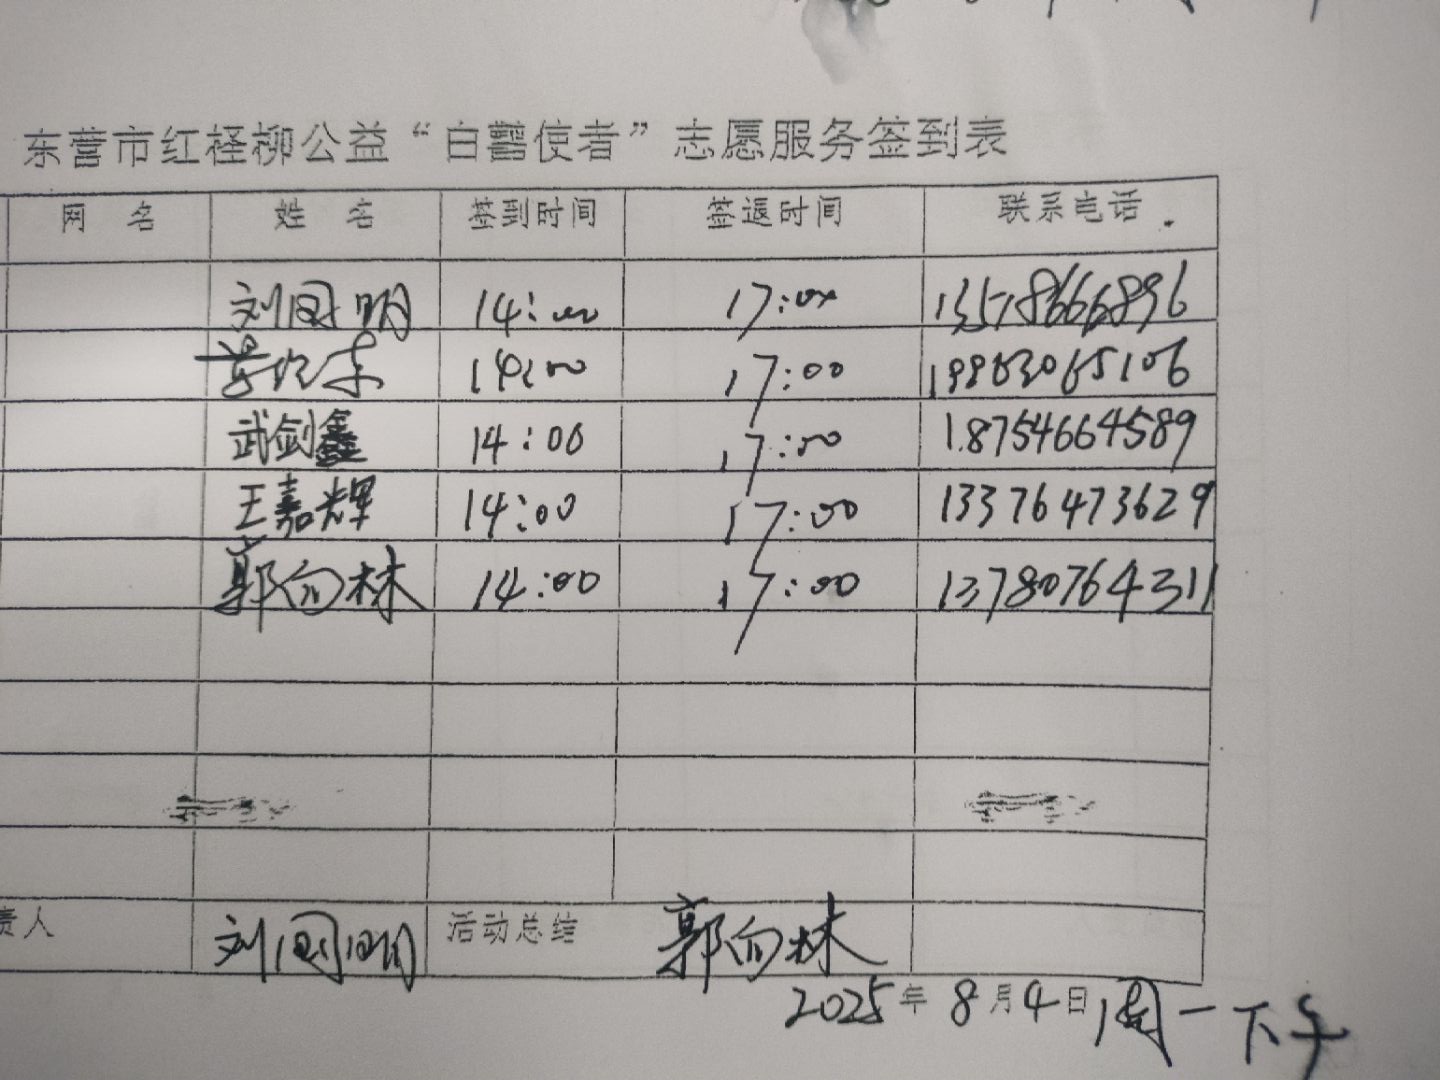 东营市红柽柳公益“白鹭使者”志愿服务签到表
网 名 姓 名 签到时间 签退时间 联系电话
刘国明 14:00 17:00
14:00 17:00 19863065106
武剑鑫 14:00 17:00 18754664589
王嘉辉 14:00 17:00 13376473629
郭向林 14:00 17:00 13780764311
责人 刘国明 活动总结 郭向林
2025年8月4日周一下午